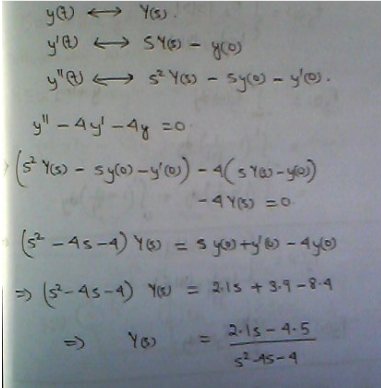 y(t) ⟷ Y(s).
y'(t) ⟷ sY(s) - y(0)
y''(t) ⟷ s² Y(s) - sy(0) - y'(0).
y'' - 4y' - 4y = 0
(s² Y(s) - sy(0) - y'(0)) - 4(s Y(s) - y(0))
- 4 Y(s) = 0
(s² - 4s - 4) Y(s) = s y(0) + y'(0) - 4y(0)
⇒ (s² - 4s - 4) Y(s) = 2.1s + 3.9 - 8.4
⇒ Y(s) = 2.1s - 4.5
s² - 4s - 4